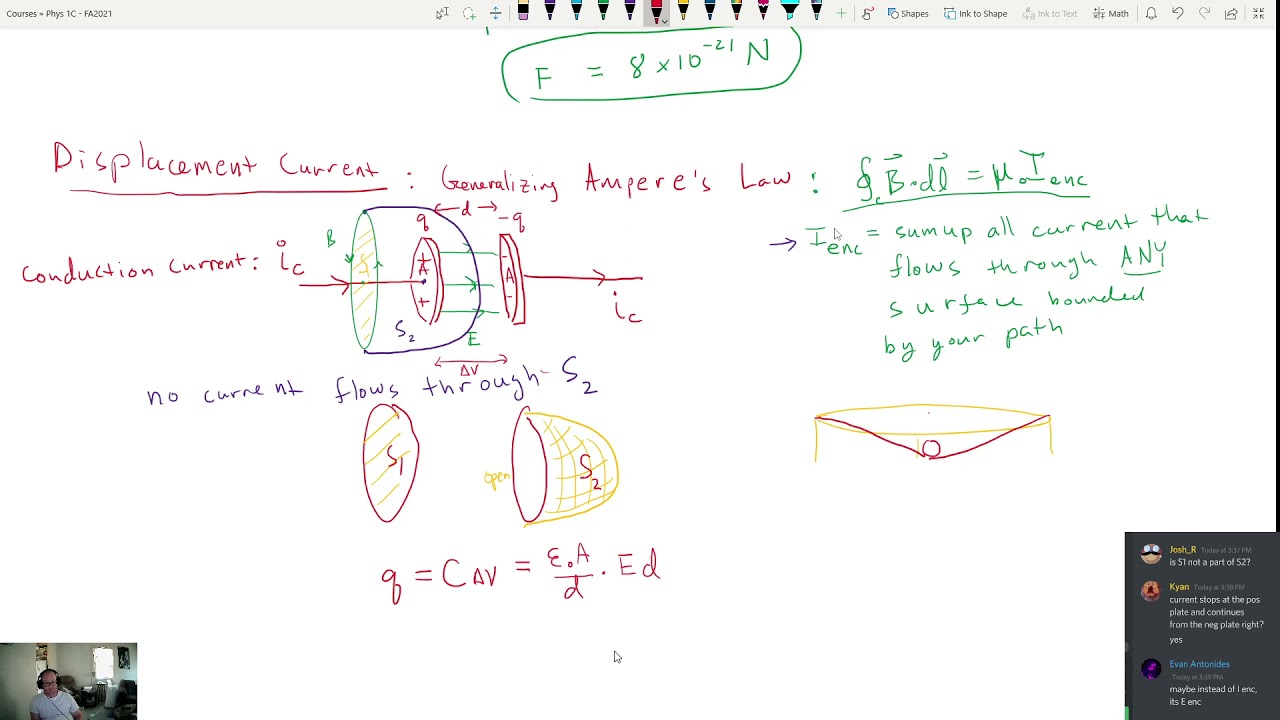 Courses » Phys 1C - FA2021
Shapes
Ink to Shape
Ink to Text
Math
F = 8 x 10^-21 N
Displacement Current : Generalizing Ampere's Law : ∮c B⃗ · dl⃗ = μ₀ I enc
→ I enc = sum up all current that
flows through ANY
surface bounded
by your path
conduction current: i c
B
S₁
q
d
-q
+
A
+
-
A
-
S₂
E
ΔV
i c
no current flows through S₂
S₁
open
S₂
q = C ΔV = ε₀A/d · Ed
Josh_R Today at 3:37 PM
is S1 not a part of S2?
Kyan Today at 3:38 PM
current stops at the pos
plate and continues
from the neg plate right?
yes
Evan Antonides
Today at 3:39 PM
maybe instead of I enc,
its E enc